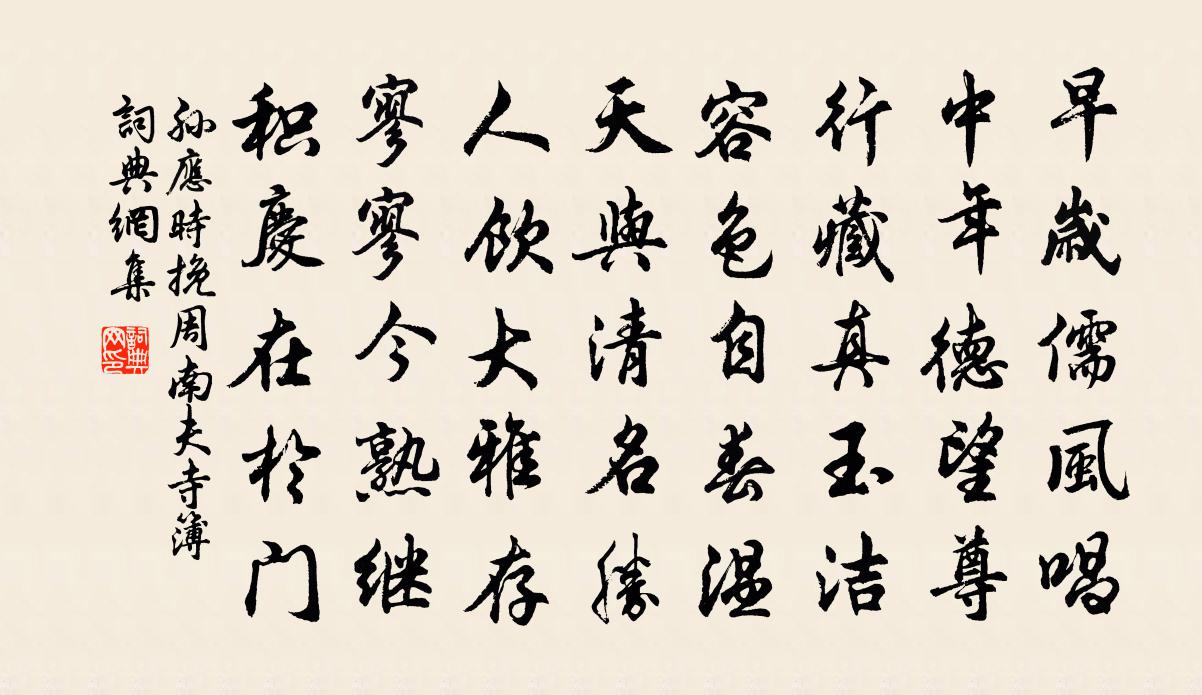 早歲儒風喝
中年德望尊
行藏真玉洁
容色自春温
天與清名勝
人飲大雅存
寥寥今熟继
积慶在於门
孙應時挽周南夫寺簿
詞典網集
詞典网印